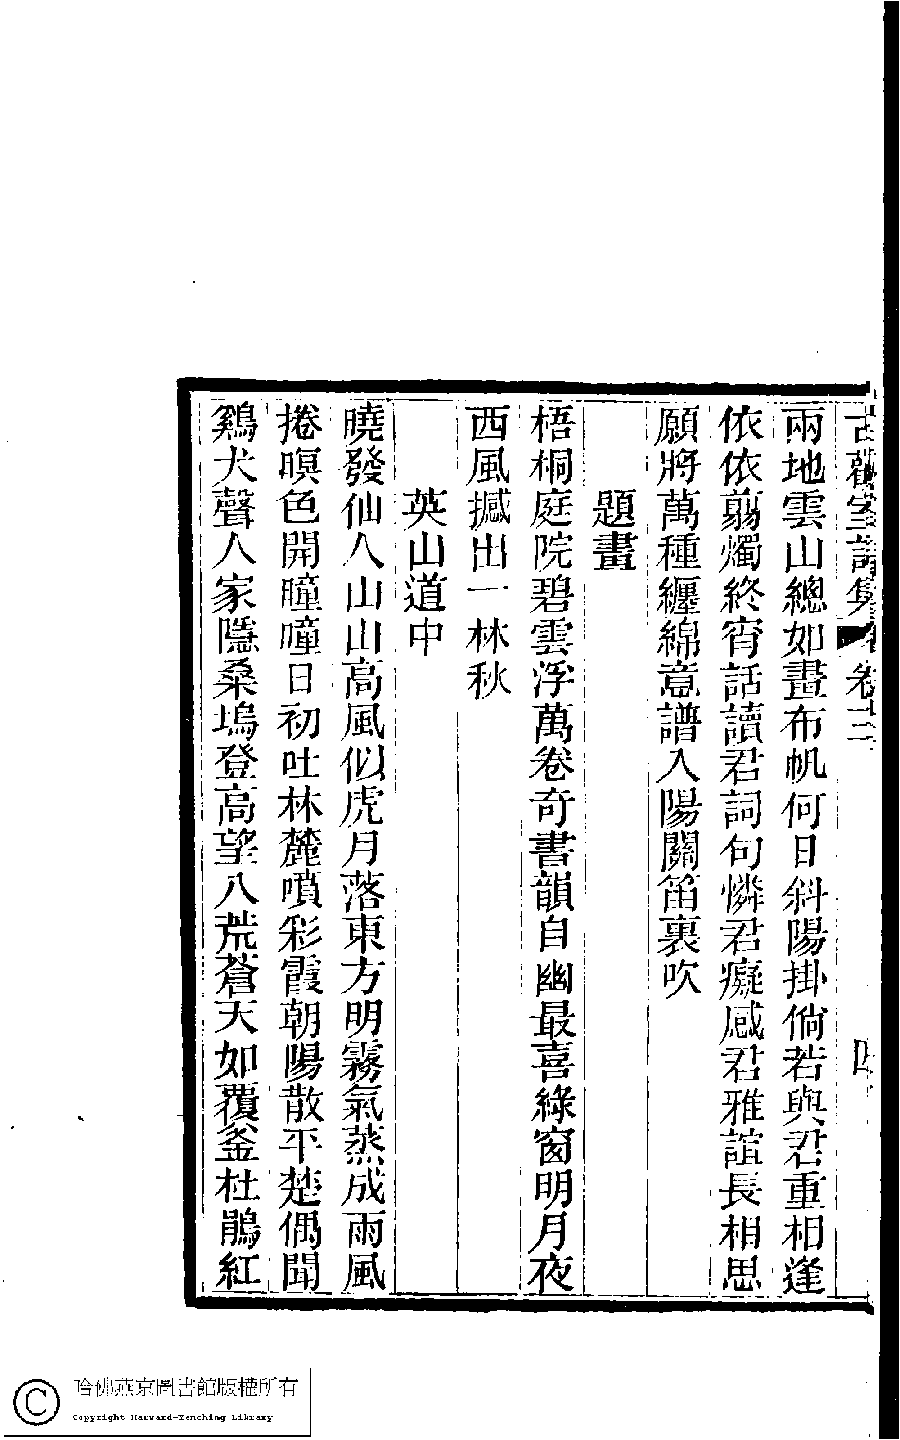 兩地雲山總如畫布帆何日斜陽掛倘若與君重相逢
依依翦燭終宵話讀君詞句憐君癡感君雅誼長相思
願將萬種纏綿意譜入陽關笛裏吹
題畫
梧桐庭院碧雲浮萬卷奇書韻自幽最喜綠窗明月夜
西風撼出一林秋
英山道中
曉發仙人山山高風似虎月落東方明霧氣蒸成雨風
捲暝色開曈曈日初吐林麓噴彩霞朝陽散平楚偶聞
鷄犬聲人家隱桑塢登高望八荒蒼天如覆釜杜鵑紅
哈佛燕京圖書館版權所有
Copyright Harvard-Yenching Library